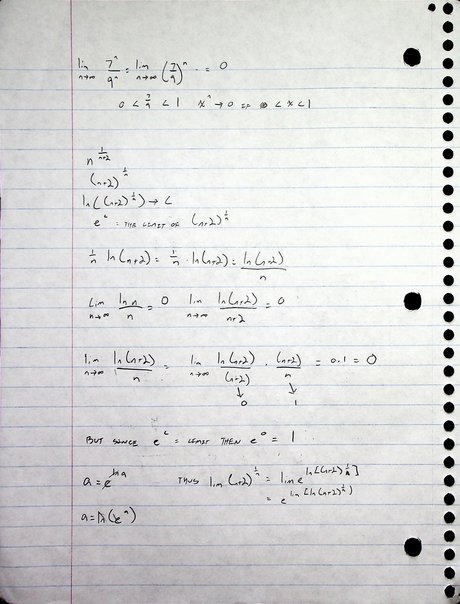 lim n→∞ 7^n/9^n = lim n→∞ (7/9)^n = 0
0 < 7/9 < 1 x^n → 0 IF 0 < x < 1
n^(1/(n+2))
(n+2)^(1/n)
ln((n+2)^(1/n)) → L
e^L = THE LIMIT OF (n+2)^(1/n)
1/n ln(n+2) = 1/n · ln(n+2) = ln(n+2)/n
lim n→∞ ln n/n = 0 lim n→∞ ln(n+2)/(n+2) = 0
lim n→∞ ln(n+2)/n = lim n→∞ ln(n+2)/(n+2) · (n+2)/n = 0·1 = 0
↓ ↓
0 1
BUT SINCE e^L = LIMIT THEN e^0 = 1
a = e^(ln a) THUS lim n→∞ (n+2)^(1/n) = lim e^(ln[(n+2)^(1/n)])
= e^(lim [ln(n+2)^(1/n)])
a = ln(e^a)